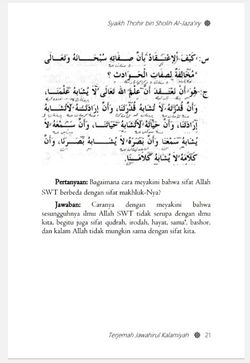 Syaikh Thohir bin Sholih Al-Jaza'iry
س: كَيْفَ الْاِعْتِقَادُ بِأَنَّ صِفَاتِهِ سُبْحَانَهُ وَتَعَالَى
مُخَالِفَةٌ لِصِفَاتِ الْحَوَادِثِ ؟
ج: هُوَ أَنْ نَعْتَقِدَ أَنَّ عِلْمَ اللهِ تَعَالَى لَا يُشَابِهُ عِلْمَنَا،
وَأَنَّ قُدْرَتَهُ لَا يُشَابِهُ قُدْرَتَنَا، وَأَنَّ إِرَادَتَهُ لَا يُشَابِهُ
إِرَادَتَنَا، وَأَنَّ حَيَاتَهُ لَا يُشَابِهُ حَيَاتَنَا، وَأَنَّ سَمْعَهُ لَا
يُشَابِهُ سَمْعَنَا وَأَنَّ بَصَرَهُ لَا يُشَابِهُ بَصَرَنَا، وَأَنَّ
كَلَامَهُ لَا يُشَابِهُ كَلَامَنَا.
Pertanyaan: Bagaimana cara meyakini bahwa sifat Allah
SWT berbeda dengan sifat makhluk-Nya?
Jawaban: Caranya dengan meyakini bahwa
sesungguhnya ilmu Allah SWT tidak serupa dengan ilmu
kita, begitu juga sifat qudrah, irodah, hayat, sama', bashor,
dan kalam Allah tidak mungkin sama dengan sifat kita.
Terjemah Jawahirul Kalamiyah 21